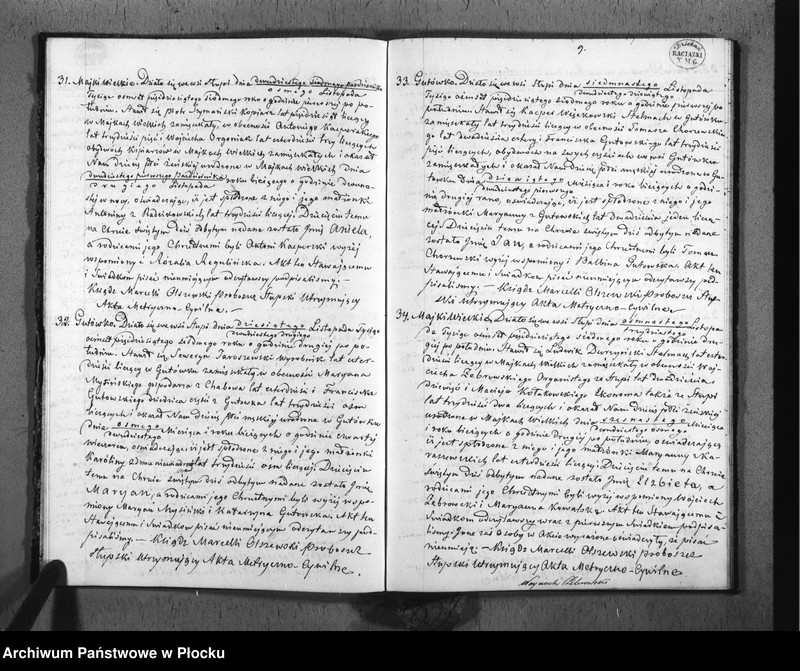 31. Majki Wielkie. Działo się we wsi Słupi dnia dwudziestego siódmego Października
ósmego Listopada
Tysiąc ośmset pięćdziesiątego siódmego roku o godzinie pierwszej po po-
łudniu. Stawił się Piotr Szymański Kopiarz lat pięćdziesiąt liczący
w Majkach Wielkich zamieszkały, w obecności Antoniego Kacperskiego
lat trzydzieści pięć i Wojciecha lat czterdzieści trzy liczących
obydwóch w Majkach Wielkich zamieszkałych i okazał
Nam dziecię płci żeńskiej urodzone w Majkach Wielkich dnia
dwudziestego pierwszego Października roku bieżącego o godzinie
drugiego Listopada
w nocy, oświadczając, iż jest spłodzone z niego i jego małżonki
Antoniny z lat trzydzieści liczącej. Dziecięciu temu
na Chrzcie Świętym dziś odbytym nadane zostało Imię Aniela,
a rodzicami jego Chrzestnymi byli Antoni Kacperski wyżej
wspomniony i Rozalia Akt ten Stawającemu
i Świadkom pisać nieumiejącym odczytawszy podpisaliśmy. —
Ksiądz Marcelli Olszewski Proboszcz Słupski Utrzymujący
Akta Metryczno-Cywilne. —
32. Gutówko. Działo się we wsi Słupi dnia dziesiątego Listopada Tysiąc
dwudziestego drugiego
ośmset pięćdziesiątego siódmego roku o godzinie drugiej po po-
łudniu. Stawił się Seweryn Jaroszewski wyrobnik lat czter-
dzieści liczący w Gutówku zamieszkały w obecności Maryana
Myślińskiego gospodarza z lat czterdzieści i Franciszka
Gutowskiego dziedzica części z Gutówka lat trzydzieści ośm
liczących i okazał Nam dziecię płci męskiej urodzone w Gutówku
dnia ósmego Miesiąca i roku bieżących o godzinie czwartej
dwudziestego
wieczorem, oświadczając iż jest spłodzone z niego i jego małżonki
Karoliny lat trzydzieści ośm liczącej. Dziecięciu
temu na Chrzcie świętym dziś odbytym nadane zostało Imię
Maryan, a rodzicami jego Chrzestnymi byli wyżej wspo-
mniony Maryan Myśliński i Katarzyna Gutowska. Akt ten
Stawającemu i Świadkom pisać nieumiejącym odczytawszy pod-
pisaliśmy. — Ksiądz Marcelli Olszewski Proboszcz
Słupski Utrzymujący Akta Metryczno-Cywilne.
9.
RACIĄŻKI
33. Gutówko. Działo się we wsi Słupi dnia siedmnastego Listopada
dwudziestego dziewiątego
Tysiąc ośmset pięćdziesiątego siódmego roku o godzinie pierwszej po
południu. Stawił się Kacper w Gutówku
zamieszkały lat trzydzieści liczący w obecności Tomasza
lat dwadzieścia cztery i Franciszka Gutowskiego lat trzydzieści
pięć liczących, obydwóch na swych częściach w wsi Gutówku
zamieszkałych i okazał Nam dziecię płci męskiej urodzone w Gu-
tówku dnia dziewiątego Miesiąca i roku bieżących o godzi-
dwudziestego pierwszego
nie drugiej rano, oświadczając, iż jest spłodzone z niego i jego
małżonki Maryanny z Gutowskich lat dwadzieścia jeden liczą-
cej. Dziecięciu temu na Chrzcie świętym dziś odbytym nadane
zostało Imię Jan, a rodzicami jego Chrzestnymi byli Tomasz
wyżej wspomniony i Balbina Gutowska. Akt ten
Stawającemu i Świadkom pisać nieumiejącym odczytawszy pod-
pisaliśmy. — Ksiądz Marcelli Olszewski Proboszcz Słup-
ski Utrzymujący Akta Metryczno-Cywilne
34. Majki Wielkie. Działo się we wsi Słupi dnia osmnastego Listopa-
trzydziestego
da Tysiąc ośmset pięćdziesiątego siódmego roku o godzinie dru-
giej po południu. Stawił się Ludwik Stelmach lat czter-
dzieści liczący w Majkach Wielkich zamieszkały w obecności Woj-
ciecha Żebrowskiego Organisty ze Słupi lat dwadzieścia
dziewięć i Macieja Kotarskiego Ekonoma także ze Słupi
lat trzydzieści dwa liczących i okazał Nam dziecię płci żeńskiej
urodzone w Majkach Wielkich dnia szesnastego Miesiąca
dwudziestego osmego
i roku bieżących o godzinie drugiej po południu, oświadczając
iż jest spłodzone z niego i jego małżonki Maryanny z Ka-
raszewskich lat czterdzieści liczącej. Dziecięciu temu na Chrzcie
świętym dziś odbytym nadane zostało Imię Elżbieta, a
rodzicami jego Chrzestnymi byli wyżej wspomniony Wojciech
Żebrowski i Maryanna Kowalska. Akt ten Stawającemu i
Świadkom odczytawszy wraz z pierwszym Świadkiem podpisa-
liśmy. Inne zaś osoby w Akcie wyrażone oświadczyły, że pisać
nieumieją. — Ksiądz Marcelli Olszewski Proboszcz
Słupski Utrzymujący Akta Metryczno-Cywilne
Wojciech Żebrowski
Archiwum Państwowe w Płocku